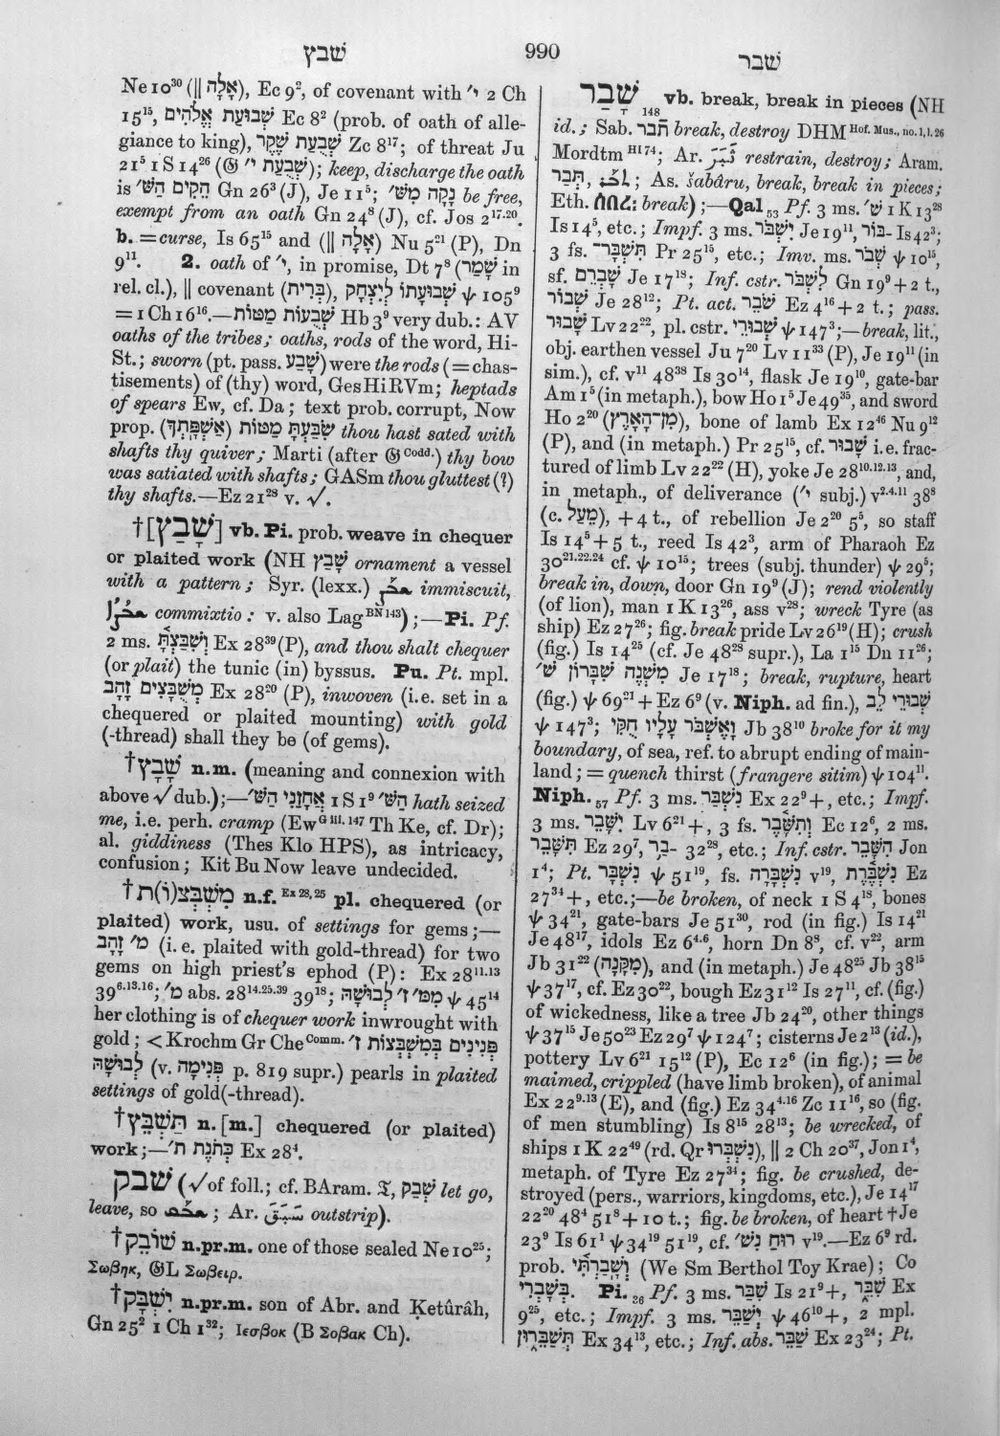 שבץ
990
שבר
Ne 10³⁰ (|| אָלָה), Ec 9², of covenant with י״ 2 Ch
15¹⁵, שְׁבוּעַת אֱלֹהִים Ec 8² (prob. of oath of alle-
giance to king), שְׁבֻעַת שֶׁקֶר Zc 8¹⁷; of threat Ju
21⁵ 1 S 14²⁶ (𝔊 שְׁבֻעַת י״); keep, discharge the oath
is הֵקִים הַשּׁ׳ Gn 26³ (J), Je 11⁵; נָקָה מִשּׁ׳ be free,
exempt from an oath Gn 24⁸ (J), cf. Jos 2¹⁷·²⁰.
b. = curse, Is 65¹⁵ and (|| אָלָה) Nu 5²¹ (P), Dn
9¹¹. 2. oath of י״, in promise, Dt 7⁸ (שָׁמַר in
rel. cl.), || covenant (בְּרִית), שְׁבוּעָתוֹ לְיִצְחָק ψ 105⁹
= 1 Ch 16¹⁶.—שְׁבֻעוֹת מַטּוֹת Hb 3⁹ very dub.: AV
oaths of the tribes; oaths, rods of the word, Hi-
St.; sworn (pt. pass. שָׁבַע) were the rods (= chas-
tisements) of (thy) word, GesHiRVm; heptads
of spears Ew, cf. Da; text prob. corrupt, Now
prop. שִׂבַּעְתָּ מַטּוֹת (אַשְׁפָּתֶךָ) thou hast sated with
shafts thy quiver; Marti (after 𝔊 Codd.) thy bow
was satiated with shafts; GASm thou gluttest (?)
thy shafts.—Ez 21²⁸ v. √.
†[שָׁבַץ] vb. Pi. prob. weave in chequer
or plaited work (NH שָׁבַץ ornament a vessel
with a pattern; Syr. (lexx.) immiscuit,
commixtio: v. also Lag BN 143);—Pi. Pf.
2 ms. וְשִׁבַּצְתָּ Ex 28³⁹ (P), and thou shalt chequer
(or plait) the tunic (in) byssus. Pu. Pt. mpl.
מְשֻׁבָּצִים זָהָב Ex 28²⁰ (P), inwoven (i.e. set in a
chequered or plaited mounting) with gold
(-thread) shall they be (of gems).
†שָׁבָץ n.m. (meaning and connexion with
above √ dub.);—אֲחָזַנִי הַשּׁ׳ 1 S 1⁹ הַשּׁ׳ hath seized
me, i.e. perh. cramp (Ew G iii. 147 Th Ke, cf. Dr);
al. giddiness (Thes Klo HPS), as intricacy,
confusion; Kit Bu Now leave undecided.
†מִשְׁבְּצ(וֹ)ת n.f. Ex 28, 25 pl. chequered (or
plaited) work, usu. of settings for gems;—
מ׳ זָהָב (i. e. plaited with gold-thread) for two
gems on high priest's ephod (P): Ex 28¹¹·¹³
39⁶·¹³·¹⁶; מ׳ abs. 28¹⁴·²⁵·³⁹ 39¹⁸; מִמּ׳ ז׳ לְבוּשָׁהּ ψ 45¹⁴
her clothing is of chequer work inwrought with
gold; < Krochm Gr Che Comm. פְּנִינִים בְּמִשְׁבְּצוֹת ז׳
לְבוּשָׁהּ (v. פְּנִימָה p. 819 supr.) pearls in plaited
settings of gold(-thread).
†תַּשְׁבֵּץ n. [m.] chequered (or plaited)
work;—כְּתֹנֶת ת׳ Ex 28⁴.
שׁבק (√ of foll.; cf. BAram. 𝔗, שְׁבַק let go,
leave, so ܫܒܩ; Ar. سَبَقَ outstrip).
†שׁוֹבֵק n.pr.m. one of those sealed Ne 10²⁵;
Σωβηκ, 𝔊L Σωβειρ.
†יִשְׁבָּק n.pr.m. son of Abr. and Ḳeṭûrâh,
Gn 25² 1 Ch 1³²; Ιεσβοκ (B Σοβακ Ch).
שָׁבַר 148 vb. break, break in pieces (NH
id.; Sab. תבר break, destroy DHM Hof. Mus., no. 1, l. 26
Mordtm HI 74; Ar. ثَبَرَ restrain, destroy; Aram.
תְּבַר, ܬܒܪ; As. šabâru, break, break in pieces;
Eth. ሰበረ: break);—Qal 53 Pf. 3 ms. שׁ׳ 1 K 13²⁸
Is 14⁵, etc.; Impf. 3 ms. יִשְׁבֹּר Je 19¹¹, ־בּוֹר Is 42³;
3 fs. תִּשְׁבָּר־ Pr 25¹⁵, etc.; Imv. ms. שְׁבֹר ψ 10¹⁵,
sf. שָׁבְרֵם Je 17¹⁸; Inf. cstr. לִשְׁבֹּר Gn 19⁹ + 2 t.,
שְׁבוֹר Je 28¹²; Pt. act. שֹׁבֵר Ez 4¹⁶ + 2 t.; pass.
שָׁבוּר Lv 22²², pl. cstr. שְׁבוּרֵי ψ 147³;—break, lit.,
obj. earthen vessel Ju 7²⁰ Lv 11³³ (P), Je 19¹¹ (in
sim.), cf. v¹¹ 48³⁸ Is 30¹⁴, flask Je 19¹⁰, gate-bar
Am 1⁵ (in metaph.), bow Ho 1⁵ Je 49³⁵, and sword
Ho 2²⁰ (מִן־הָאָרֶץ), bone of lamb Ex 12⁴⁶ Nu 9¹²
(P), and (in metaph.) Pr 25¹⁵, cf. שָׁבוּר i.e. frac-
tured of limb Lv 22²² (H), yoke Je 28¹⁰·¹²·¹³, and,
in metaph., of deliverance (י״ subj.) v²·⁴·¹¹ 38⁸
(c. מֵעַל), + 4 t., of rebellion Je 2²⁰ 5⁵, so staff
Is 14⁵ + 5 t., reed Is 42³, arm of Pharaoh Ez
30²¹·²²·²⁴ cf. ψ 10¹⁵; trees (subj. thunder) ψ 29⁵;
break in, down, door Gn 19⁹ (J); rend violently
(of lion), man 1 K 13²⁶, ass v²⁸; wreck Tyre (as
ship) Ez 27²⁶; fig. break pride Lv 26¹⁹ (H); crush
(fig.) Is 14²⁵ (cf. Je 48²⁸ supr.), La 1¹⁵ Dn 11²⁶;
מִשְׁנֶה שִׁבָּרוֹן שׁ׳ Je 17¹⁸; break, rupture, heart
(fig.) ψ 69²¹ + Ez 6⁹ (v. Niph. ad fin.), שְׁבוּרֵי לֵב
ψ 147³; וָאֶשְׁבֹּר עָלָיו חֻקִּי Jb 38¹⁰ broke for it my
boundary, of sea, ref. to abrupt ending of main-
land; = quench thirst (frangere sitim) ψ 104¹¹.
Niph. 57 Pf. 3 ms. נִשְׁבַּר Ex 22⁹ +, etc.; Impf.
3 ms. יִשָּׁבֵר Lv 6²¹ +, 3 fs. וְתִשָּׁבֶר Ec 12⁶, 2 ms.
תִּשָּׁבֵר Ez 29⁷, ־בַר 32²⁸, etc.; Inf. cstr. הִשָּׁבֵר Jon
1⁴; Pt. נִשְׁבָּר ψ 51¹⁹, fs. נִשְׁבָּרָה v¹⁹, נִשְׁבֶּרֶת Ez
27³⁴ +, etc.;—be broken, of neck 1 S 4¹⁸, bones
ψ 34²¹, gate-bars Je 51³⁰, rod (in fig.) Is 14²¹
Je 48¹⁷, idols Ez 6⁴·⁶, horn Dn 8⁸, cf. v²², arm
Jb 31²² (מִקָּנָה), and (in metaph.) Je 48²⁵ Jb 38¹⁵
ψ 37¹⁷, cf. Ez 30²², bough Ez 31¹² Is 27¹¹, cf. (fig.)
of wickedness, like a tree Jb 24²⁰, other things
ψ 37¹⁵ Je 50²³ Ez 29⁷ ψ 124⁷; cisterns Je 2¹³ (id.),
pottery Lv 6²¹ 15¹² (P), Ec 12⁶ (in fig.); = be
maimed, crippled (have limb broken), of animal
Ex 22⁹·¹³ (E), and (fig.) Ez 34⁴·¹⁶ Zc 11¹⁶, so (fig.
of men stumbling) Is 8¹⁵ 28¹³; be wrecked, of
ships 1 K 22⁴⁹ (rd. Qr נִשְׁבְּרוּ), || 2 Ch 20³⁷, Jon 1⁴,
metaph. of Tyre Ez 27³⁴; fig. be crushed, de-
stroyed (pers., warriors, kingdoms, etc.), Je 14¹⁷
22²⁰ 48⁴ 51⁸ + 10 t.; fig. be broken, of heart † Je
23⁹ Is 61¹ ψ 34¹⁹ 51¹⁹, cf. רוּחַ נִשׁ׳ v¹⁹.—Ez 6⁹ rd.
prob. וְשָׁבַרְתִּי (We Sm Berthol Toy Krae); Co
בְּשָׁבְרִי. Pi. 36 Pf. 3 ms. שִׁבַּר Is 21⁹ +, שִׁבֵּר Ex
9²⁵, etc.; Impf. 3 ms. יְשַׁבֵּר ψ 46¹⁰ +, 2 mpl.
תְּשַׁבֵּרוּן Ex 34¹³, etc.; Inf. abs. שַׁבֵּר Ex 23²⁴; Pt.